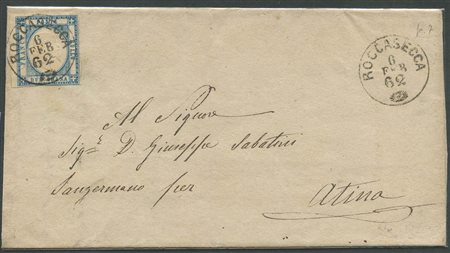 ROCCASECCA
6
FEB
62
ROCCASECCA
6
FEB
62
Al Signore
Sig.r D. Giuseppe Sabatini
Sangermano per
Atina